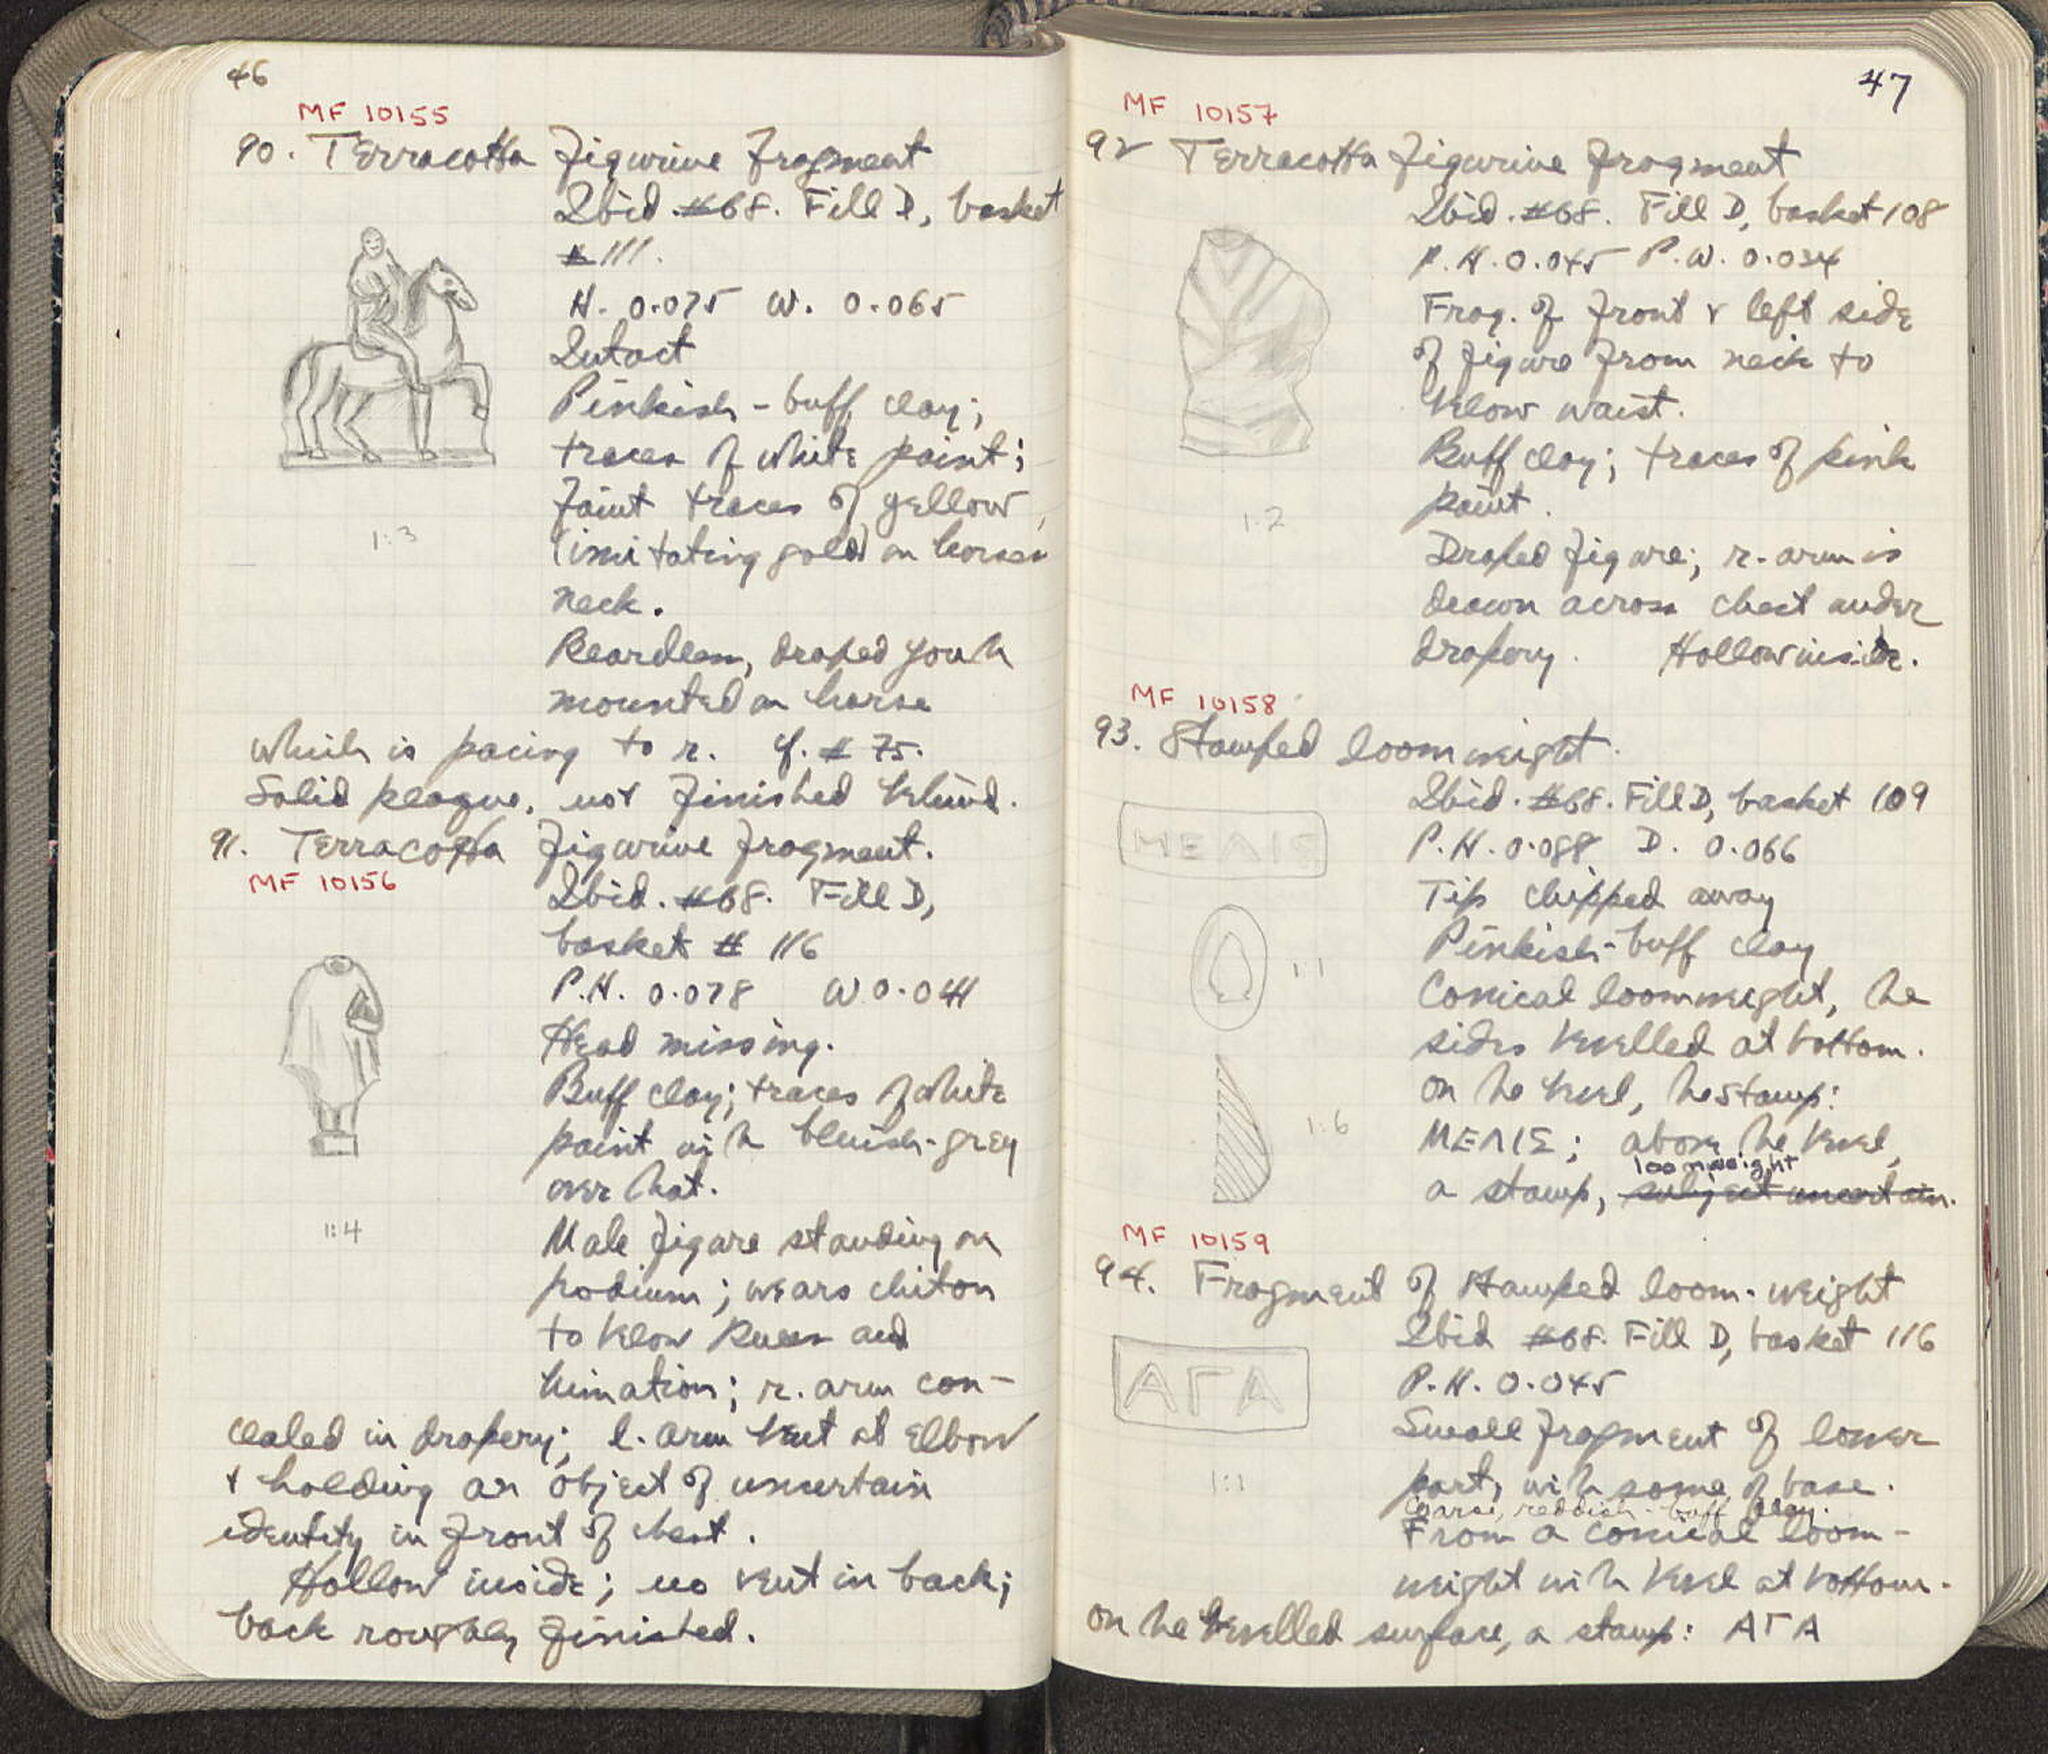 46
MF 10155
90. Terracotta figurine fragment
Ibid. #68. Fill D, basket
#111.
H. 0.075 W. 0.065
Intact
Pinkish-buff clay;
traces of white paint;
faint traces of yellow
(imitating gold) on horses
neck.
Beardless, draped youth
mounted on horse
1:3
which is pacing to r. cf. # 75.
Solid plaque, not finished behind.
91. Terracotta figurine fragment.
MF 10156
Ibid. #68. Fill D,
basket # 116
P.H. 0.078 W 0.041
Head missing.
Buff clay; traces of white
paint with bluish-grey
over that.
Male figure standing on
podium; wears chiton
to below knees and
himation; r. arm con-
1:4
cealed in drapery; l. arm bent at elbow
& holding an object of uncertain
identity in front of chest.
Hollow inside; no vent in back;
back roughly finished.
47
MF 10157
92 Terracotta figurine fragment
Ibid. #68. Fill D, basket 108
P.H. 0.045 P.W. 0.034
Frag. of front & left side
of figure from neck to
below waist.
Buff clay; traces of pink
paint.
1:2
Draped figure; r. arm is
drawn across chest under
drapery. Hollow inside.
MF 10158
93. Stamped loomweight.
Ibid. #68. Fill D, basket 109
ΜΕΛΙΣ
P.H. 0.088 D. 0.066
Tip chipped away
Pinkish-buff clay
1:1
Conical loomweight, the
sides bevelled at bottom.
On the bevel, the stamp:
1:6
ΜΕΛΙΣ; above the bevel,
loomweight
a stamp, subject uncertain.
MF 10159
94. Fragment of stamped loom-weight
Ibid #68. Fill D, basket 116
ΑΓΑ
P.H. 0.045
Small fragment of lower
1:1
part, with some of base.
Coarse, reddish-buff clay.
From a conical loom-
weight with bevel at bottom.
On the bevelled surface, a stamp: ΑΓΑ